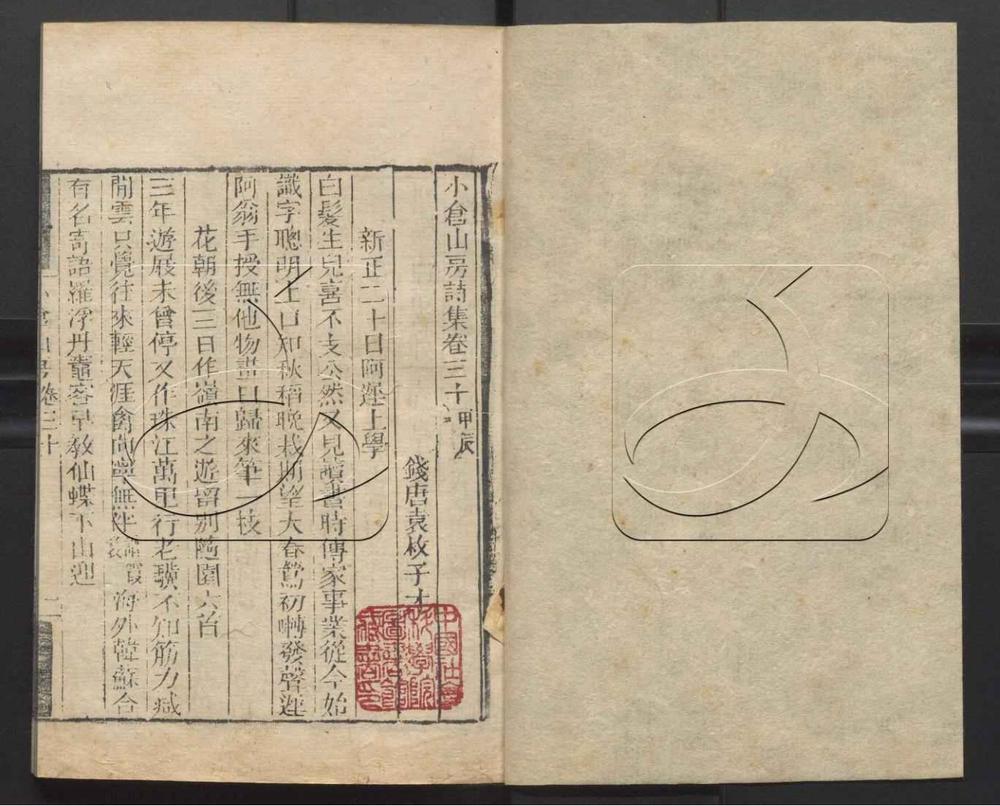 小倉山房詩集卷三十甲辰
錢唐袁枚子才
新正二十日阿遲上學
白髮生兒喜不支公然又見讀書時傳家事業從今始
識字聰明上口知秋稻晚栽期望大春鶯初囀發聲遲
阿翁手授無他物晝日歸來筆一枝
花朝後三日作嶺南之遊留別隨園六首
三年遊屐未曾停又作珠江萬里行老驥不知筋力減
閒雲只覺往來輕天涯禽尚無伴海外韓蘇合
有名寄語羅浮丹竈客早教仙蝶下山迎
小倉山房卷三十
一
中國社會科學院圖書館藏書印